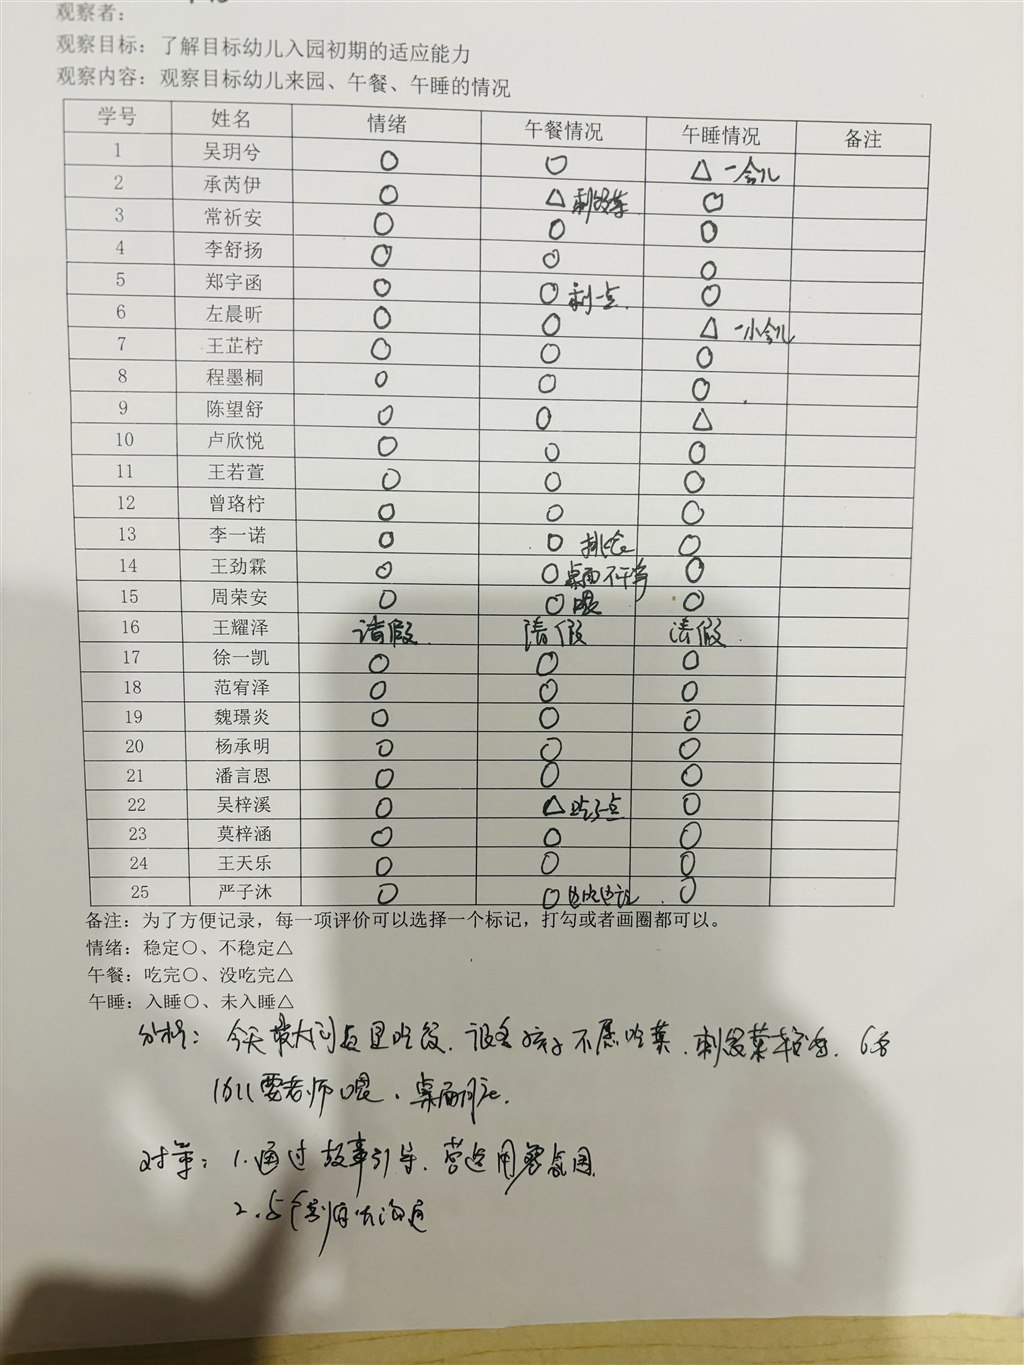 观察者：
观察目标：了解目标幼儿入园初期的适应能力
观察内容：观察目标幼儿来园、午餐、午睡的情况
学号 姓名 情绪 午餐情况 午睡情况 备注
1 吴玥兮 ○ ○ △ 一会儿
2 承芮伊 ○ △ ○
3 常祈安 ○ ○ ○
4 李舒扬 ○ ○ ○
5 郑宇函 ○ ○ 剩一点 ○
6 左晨昕 ○ ○ △ 一小会儿
7 王芷柠 ○ ○ ○
8 程墨桐 ○ ○ ○
9 陈望舒 ○ ○ △
10 卢欣悦 ○ ○ ○
11 王若萱 ○ ○ ○
12 曾珞柠 ○ ○ ○
13 李一诺 ○ ○ 挑食 ○
14 王劲霖 ○ ○ 桌面不干净 ○
15 周荣安 ○ ○ 喂 ○
16 王耀泽 请假 请假 请假
17 徐一凯 ○ ○ ○
18 范宥泽 ○ ○ ○
19 魏璟炎 ○ ○ ○
20 杨承明 ○ ○ ○
21 潘言恩 ○ ○ ○
22 吴梓溪 ○ △ 吃了一点 ○
23 莫梓涵 ○ ○ ○
24 王天乐 ○ ○ ○
25 严子沐 ○ ○ ○
备注：为了方便记录，每一项评价可以选择一个标记，打勾或者画圈都可以。
情绪：稳定○、不稳定△
午餐：吃完○、没吃完△
午睡：入睡○、未入睡△
分析：今天最大问题是吃饭．很多孩子不愿吃菜．剩饭菜较多．
要老师喂．桌面
对策：1.通过故事引导．营造用餐氛围
2.与个别